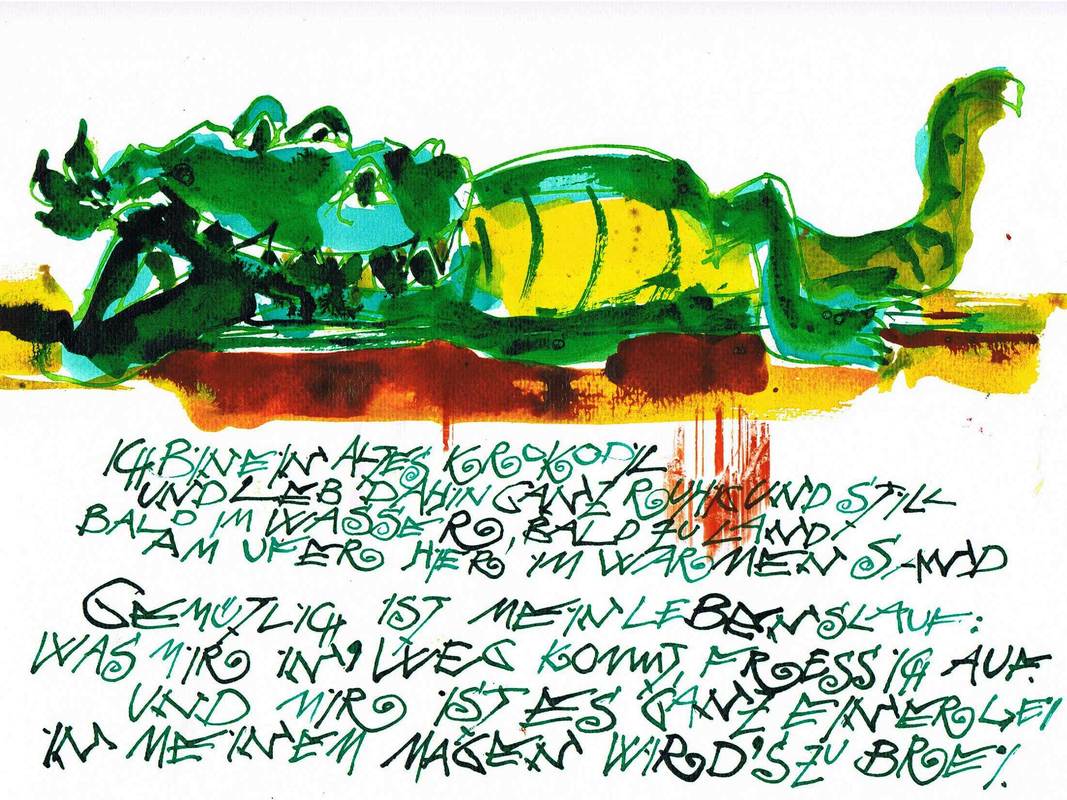 ICH BIN EIN ALTES KROKODIL
UND LEB DAHIN GANZ RUHIG UND STILL
BALD IM WASSER, BALD ZU LAND
AM UFER HIER IM WARMEN SAND
GEMÜTLICH IST MEIN LEBENSLAUF:
WAS MIR IN'N WEG KOMMT, FRESS ICH AUF.
UND MIR IST ES GANZ EINERLEI
IN MEINEM MAGEN WIRD'S ZU BREI.